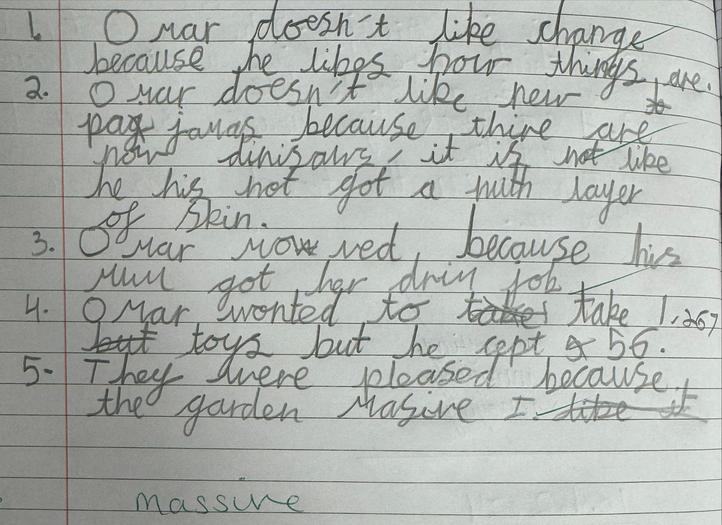 1. Omar doesn't like change
because he likes how things are.
2. Omar doesn't like new
pajamas because thire are
now dinisaws, it is not like
he his not got a nuth layer
of skin.
3. Omar moved because his
mum got her drim job
4. Omar wonted to take 1,267
toys but he cept 56.
5- They were pleased because
the garden masive
massive